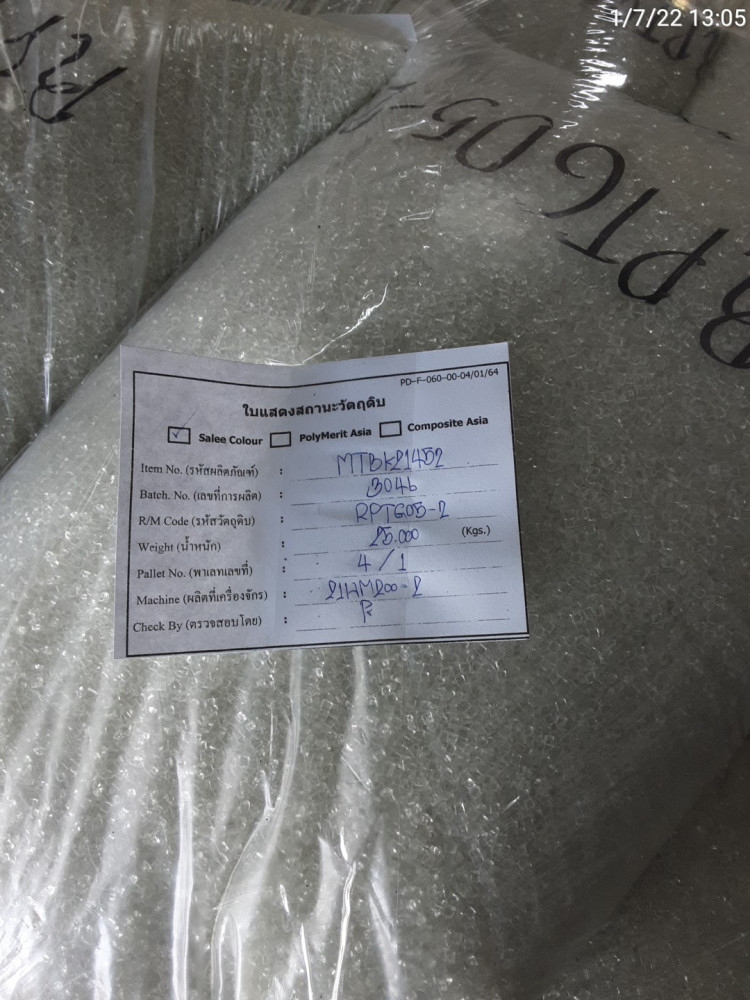 1/7/22 13:05
RPTG05-
PD-F-060-00-04/01/64
ใบแสดงสถานะวัตถุดิบ
Salee Colour PolyMerit Asia Composite Asia
Item No. (รหัสผลิตภัณฑ์) : MTBK21452
Batch. No. (เลขที่การผลิต) : 3046
R/M Code (รหัสวัตถุดิบ) : RPTG05-2
Weight (น้ำหนัก) : 25.000 (Kgs.)
Pallet No. (พาเลทเลขที่) : 4/1
Machine (ผลิตที่เครื่องจักร) :
Check By (ตรวจสอบโดย) :